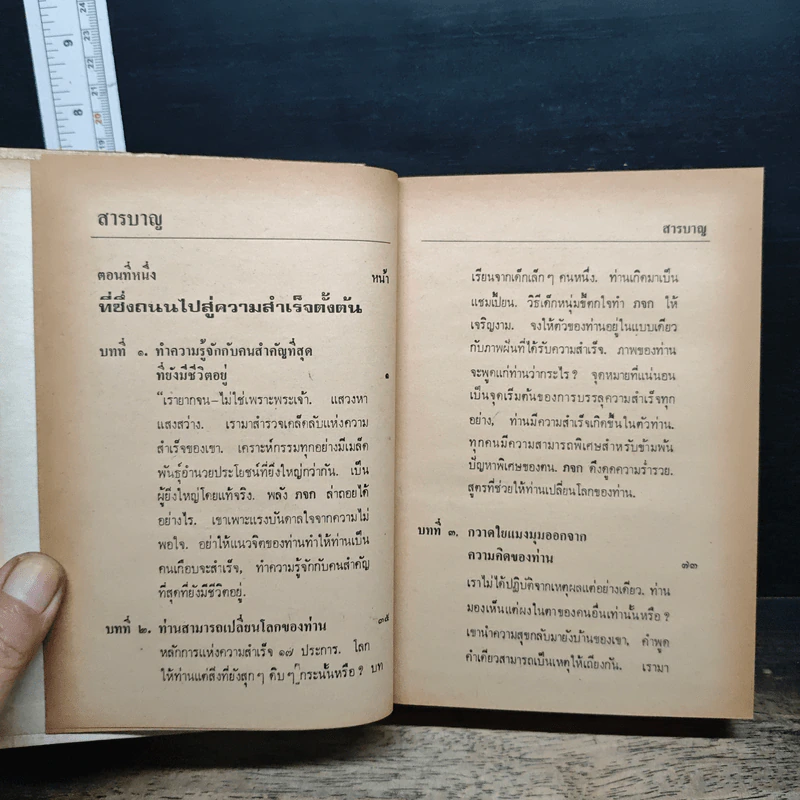 สารบาญ
ตอนที่หนึ่ง หน้า
ที่ซึ่งถนนไปสู่ความสำเร็จตั้งต้น
บทที่ ๑. ทำความรู้จักกับคนสำคัญที่สุด
ที่ยังมีชีวิตอยู่ ๑
"เรายากจน–ไม่ใช่เพราะพระเจ้า. แสวงหา
แสงสว่าง. เรามาสำรวจเคล็ดลับแห่งความ
สำเร็จของเขา. เคราะห์กรรมทุกอย่างมีเมล็ด
พันธุ์อำนวยประโยชน์ที่ยิ่งใหญ่กว่ากัน. เป็น
ผู้ยิ่งใหญ่โดยแท้จริง. พลัง ภจก ล่าถอยได้
อย่างไร. เขาเพาะแรงบันดาลใจจากความไม่
พอใจ. อย่าให้แนวจิตของท่านทำให้ท่านเป็น
คนเกือบจะสำเร็จ, ทำความรู้จักกับคนสำคัญ
ที่สุดที่ยังมีชีวิตอยู่.
บทที่ ๒. ท่านสามารถเปลี่ยนโลกของท่าน ๓๕
หลักการแห่งความสำเร็จ ๑๗ ประการ. โลก
ให้ท่านแต่สิ่งที่ยังสุก ๆ ดิบ ๆ กระนั้นหรือ ? บท
สารบาญ
เรียนจากเด็กเล็ก ๆ คนหนึ่ง. ท่านเกิดมาเป็น
แชมเปี้ยน. วิธีเด็กหนุ่มขี้ตกใจทำ ภจก ให้
เจริญงาม. จงให้ตัวของท่านอยู่ในแบบเดียว
กับภาพผันที่ได้รับความสำเร็จ. ภาพของท่าน
จะพูดแก่ท่านว่ากระไร ? จุดหมายที่แน่นอน
เป็นจุดเริ่มต้นของการบรรลุความสำเร็จทุก
อย่าง, ท่านมีความสำเร็จเกิดขึ้นในตัวท่าน.
ทุกคนมีความสามารถพิเศษสำหรับข้ามพ้น
ปัญหาพิเศษของตน. ภจก ดึงดูดความร่ำรวย.
สูตรที่ช่วยให้ท่านเปลี่ยนโลกของท่าน.
บทที่ ๓. กวาดใยแมงมุมออกจาก
ความคิดของท่าน ๗๓
เราไม่ได้ปฏิบัติจากเหตุผลแต่อย่างเดียว. ท่าน
มองเห็นแต่ผงในตาของคนอื่นเท่านั้นหรือ ?
เขานำความสุขกลับมายังบ้านของเขา, คำพูด
คำเดียวสามารถเป็นเหตุให้เถียงกัน. เรามา
9
8
24
23
22
21
20
19